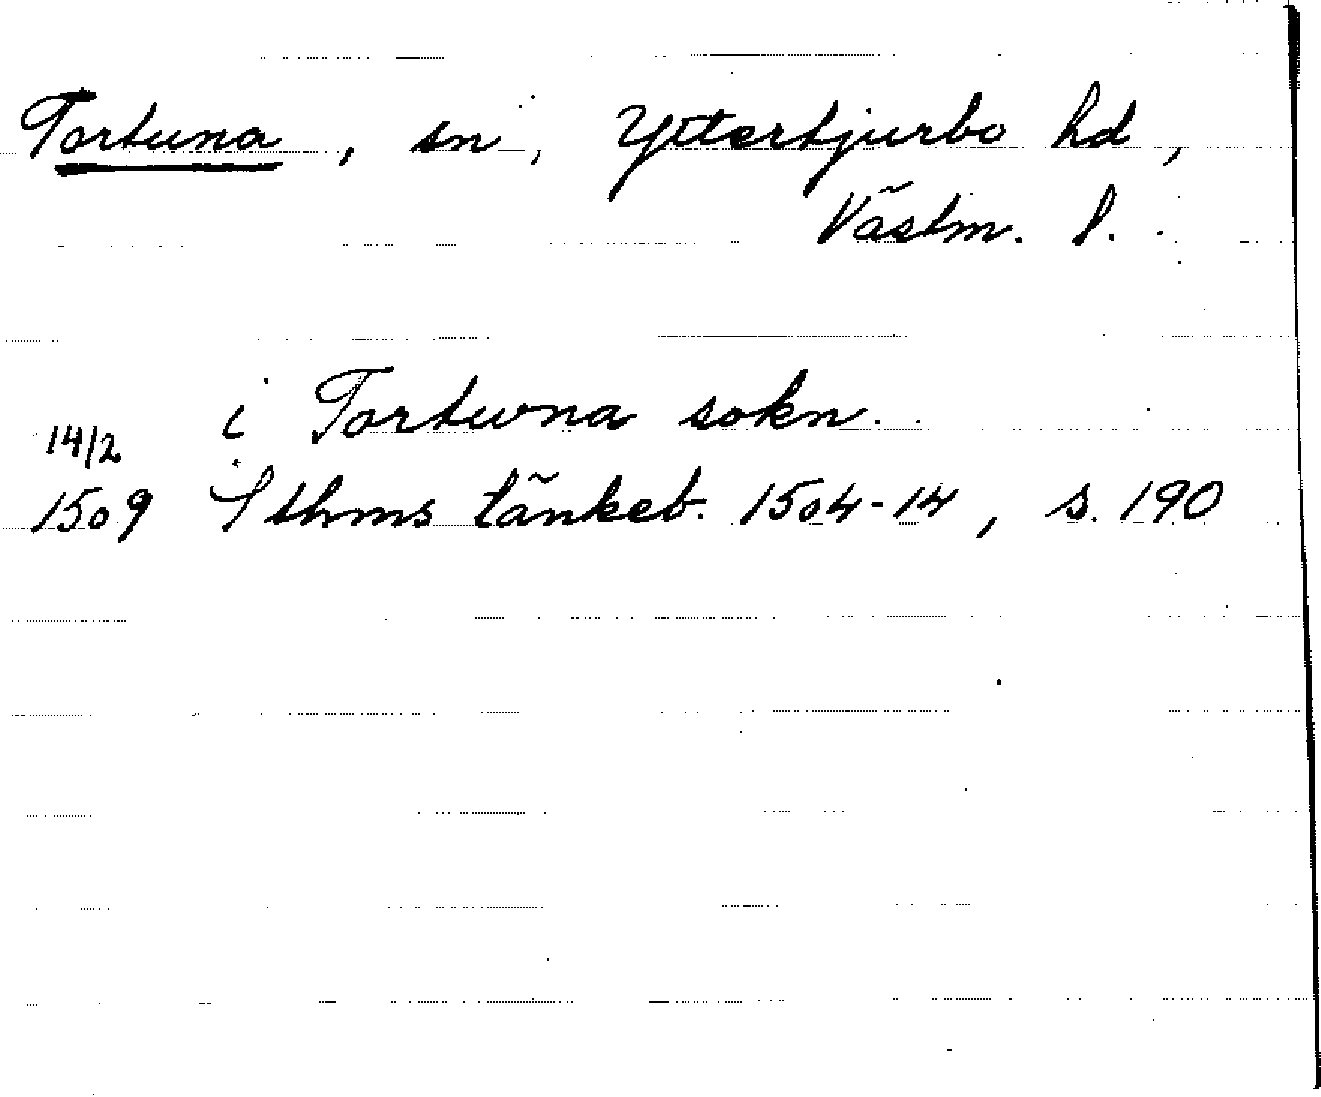 Tortuna, sn, Yttertjurbo hd,
Västm. l.
i Tortwna sokn.
14/2
1509 Sthms tänkeb. 1504-14, s. 190